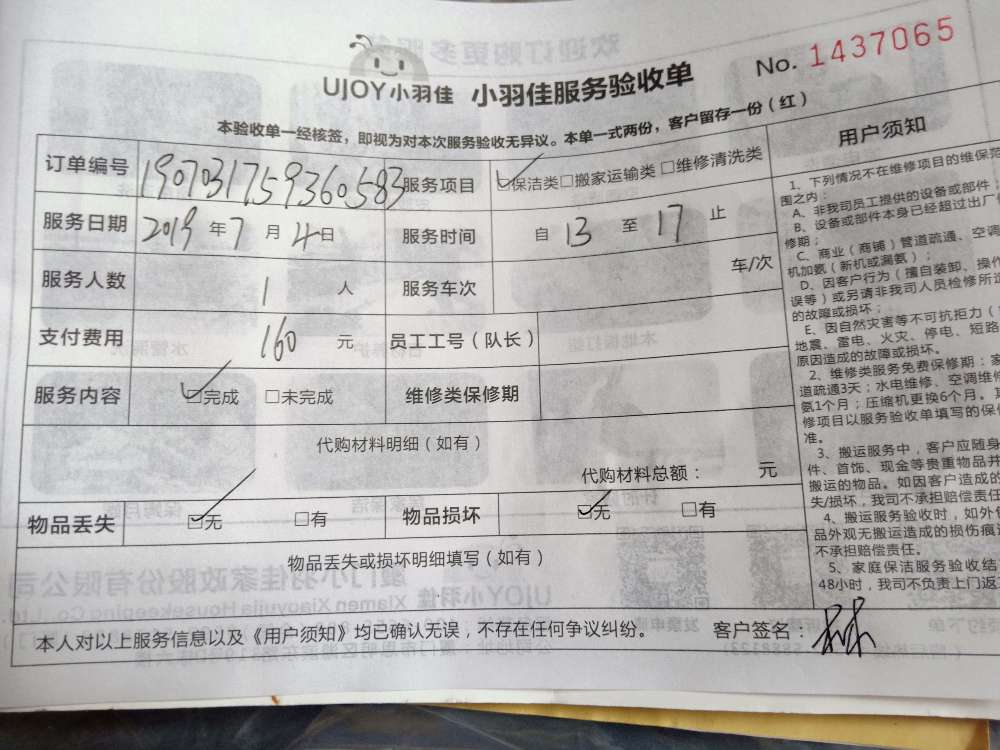 No. 1437065
UJOY小羽佳 小羽佳服务验收单
本验收单一经核签，即视为对本次服务验收无异议。本单一式两份，客户留存一份（红）
订单编号 1907031759360583 服务项目 保洁类 搬家运输类 维修清洗类
服务日期 2019 年 7 月 4 日 服务时间 自 13 至 17 止
服务人数 1 人 服务车次 车/次
支付费用 160 元 员工工号（队长）
服务内容 完成 未完成 维修类保修期
代购材料明细（如有）
代购材料总额： 元
物品丢失 无 有 物品损坏 无 有
物品丢失或损坏明细填写（如有）
本人对以上服务信息以及《用户须知》均已确认无误，不存在任何争议纠纷。 客户签名：
用户须知
1、下列情况不在维修项目的维保范
围之内：
A、非我司员工提供的设备或部件；
B、设备或部件本身已经超过出厂
修期；
C、商业（商铺）管道疏通、空调
机加氨（新机或漏氨）；
D、因客户行为（擅自装卸、操作
误等）或另请非我司人员检修所造
的故障或损坏；
E、因自然灾害等不可抗拒力（
地震、雷电、火灾、停电、短路
原因造成的故障或损坏。
2、维修类服务免费保修期：家
道疏通3天；水电维修、空调维修
氨1个月；压缩机更换6个月。其
修项目以服务验收单填写的保修
准。
3、搬运服务中，客户应随身
件、首饰、现金等贵重物品并
搬运的物品。如因客户造成的
失/损坏，我司不承担赔偿责任
4、搬运服务验收时，如外包
品外观无搬运造成的损伤痕迹
不承担赔偿责任。
5、家庭保洁服务验收结
48小时，我司不负责上门返